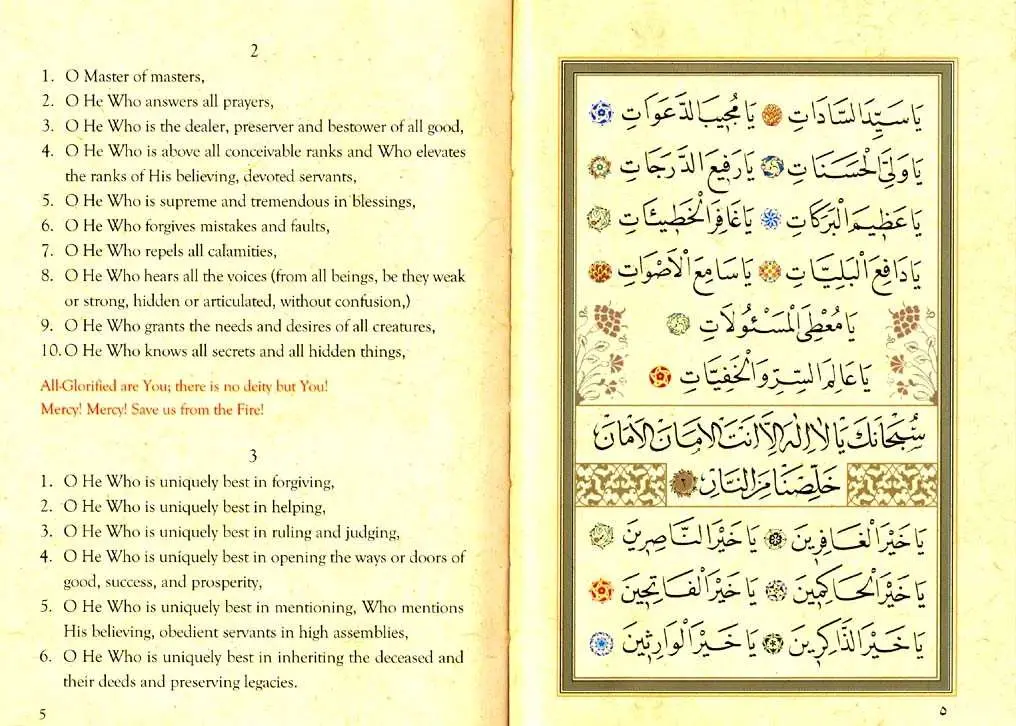 2
1. O Master of masters,
2. O He Who answers all prayers,
3. O He Who is the dealer, preserver and bestower of all good,
4. O He Who is above all conceivable ranks and Who elevates
the ranks of His believing, devoted servants,
5. O He Who is supreme and tremendous in blessings,
6. O He Who forgives mistakes and faults,
7. O He Who repels all calamities,
8. O He Who hears all the voices (from all beings, be they weak
or strong, hidden or articulated, without confusion,)
9. O He Who grants the needs and desires of all creatures,
10. O He Who knows all secrets and all hidden things,
All-Glorified are You; there is no deity but You!
Mercy! Mercy! Save us from the Fire!
3
1. O He Who is uniquely best in forgiving,
2. O He Who is uniquely best in helping,
3. O He Who is uniquely best in ruling and judging,
4. O He Who is uniquely best in opening the ways or doors of
good, success, and prosperity,
5. O He Who is uniquely best in mentioning, Who mentions
His believing, obedient servants in high assemblies,
6. O He Who is uniquely best in inheriting the deceased and
their deeds and preserving legacies.
5
يَا سَيِّدَ السَّادَاتِ يَا مُجِيبَ الدَّعَوَاتِ
يَا وَلِيَّ الْحَسَنَاتِ يَا رَفِيعَ الدَّرَجَاتِ
يَا عَظِيمَ الْبَرَكَاتِ يَا غَافِرَ الْخَطِيئَاتِ
يَا دَافِعَ الْبَلِيَّاتِ يَا سَامِعَ الْأَصْوَاتِ
يَا مُعْطِيَ الْمَسْئُولَاتِ
يَا عَالِمَ السِّرِّ وَالْخَفِيَّاتِ
سُبْحَانَكَ يَا لَا إِلٰهَ إِلَّا أَنْتَ الْأَمَانَ الْأَمَانَ
خَلِّصْنَا مِنَ النَّارِ ٢
يَا خَيْرَ الْغَافِرِينَ يَا خَيْرَ النَّاصِرِينَ
يَا خَيْرَ الْحَاكِمِينَ يَا خَيْرَ الْفَاتِحِينَ
يَا خَيْرَ الذَّاكِرِينَ يَا خَيْرَ الْوَارِثِينَ
٥